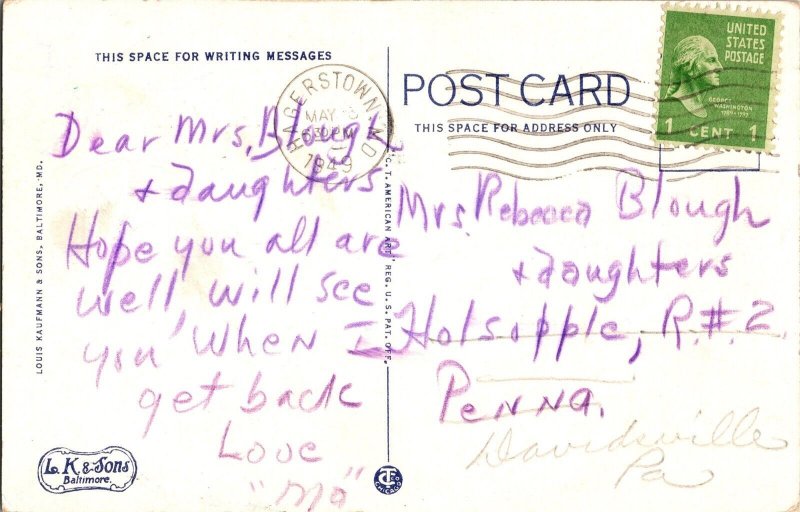 THIS SPACE FOR WRITING MESSAGES
Dear Mrs. Blough
+ daughters
Hope you all are
well will see
you when I
get back
Love
"Ma"
LOUIS KAUFMANN & SONS, BALTIMORE, MD.
L. K. & Sons
Baltimore.
"C. T. AMERICAN ART" REG. U. S. PAT. OFF.
CT
CHICAGO
HAGERSTOWN, MD
MAY
630 PM
1949
POST CARD
THIS SPACE FOR ADDRESS ONLY
UNITED
STATES
POSTAGE
GEORGE
WASHINGTON
1789-1797
1 CENT 1
Mrs. Rebecca Blough
+ daughters
Holsopple, R.#.2.
Penna.
Davidsville
Pa